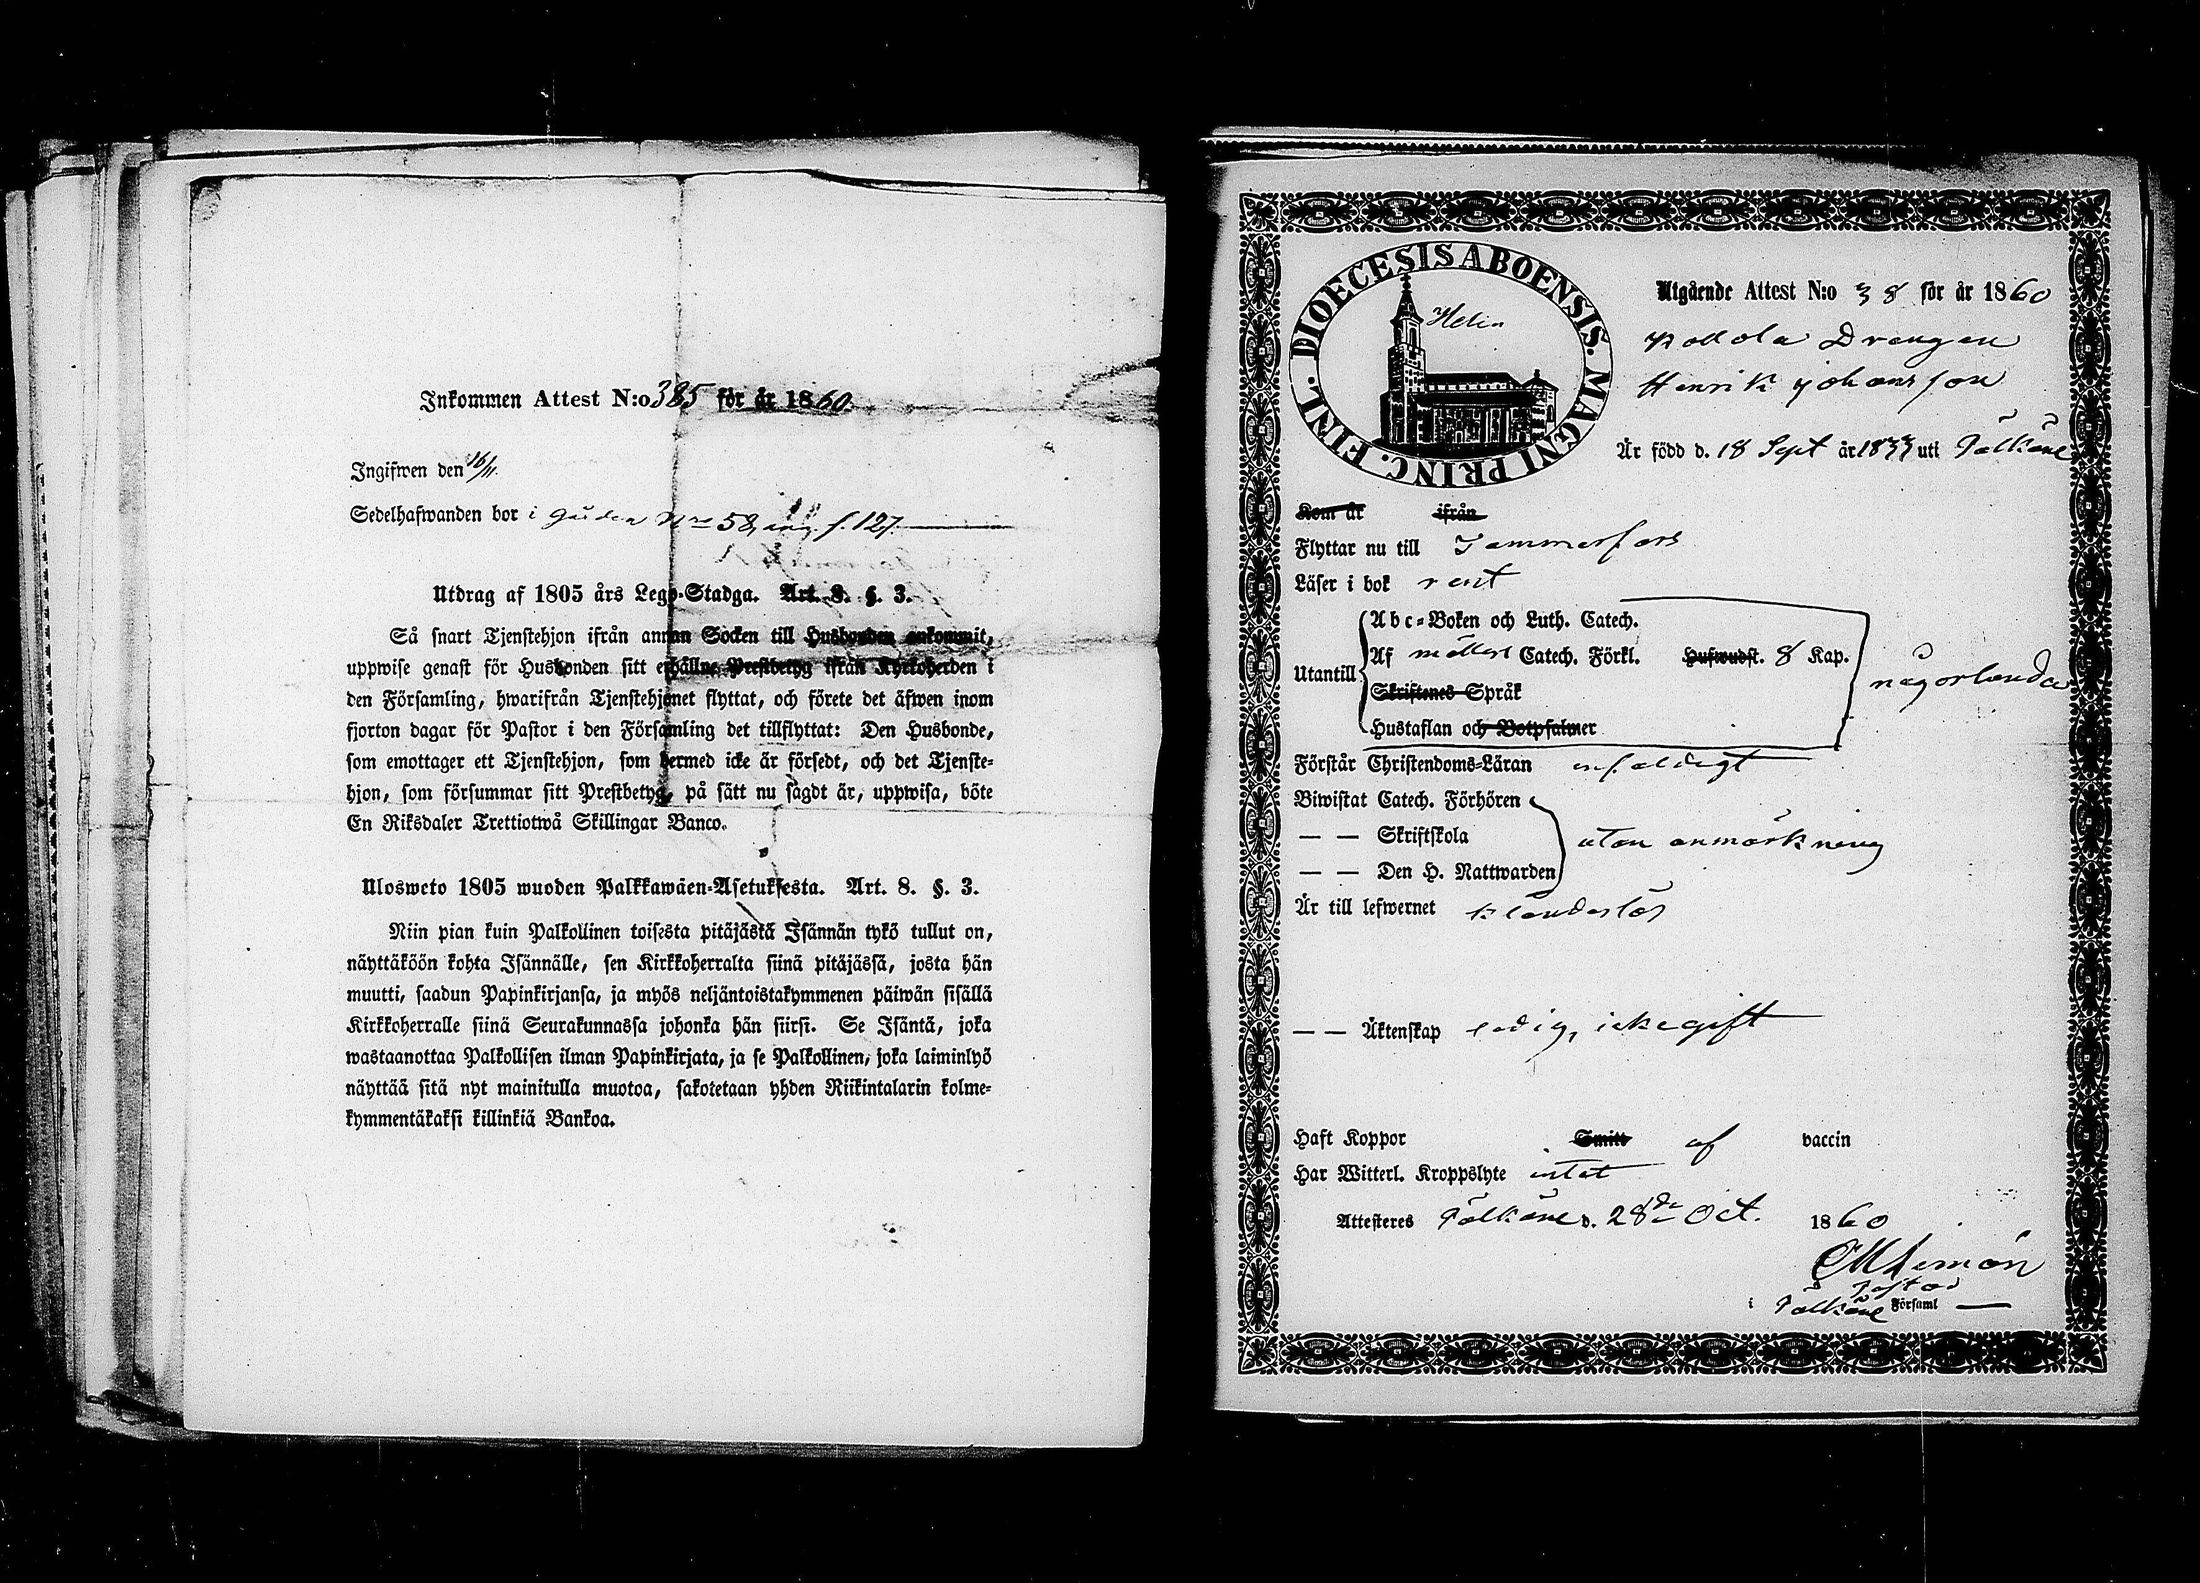 Inkommen Attest N:o 385 för år 1860.
Ingifwen den 16/11.
Sedelhafwanden bor i gården Nro 58, f. 127.
Utdrag af 1805 års Lego-Stadga. Art. 8. §. 3.
Så snart Tjenstehjon ifrån annan Socken till Husbonden ankommit,
uppwise genast för Husbonden sitt erhållne Prestbetyg ifrån Kyrkoherden i
den Församling, hwarifrån Tjenstehjonet flyttat, och förete det äfwen inom
fjorton dagar för Pastor i den Församling det tillflyttat: Den Husbonde,
som emottager ett Tjenstehjon, som dermed icke är försedt, och det Tjenste-
hjon, som försummar sitt Prestbetyg, på sätt nu sagdt är, uppwisa, böte
En Riksdaler Trettiotwå Skillingar Banco.
Ulosweto 1805 wuoden Palkkawäen-Asetuksesta. Art. 8. §. 3.
Niin pian kuin Palkollinen toisesta pitäjästä Isännän tykö tullut on,
näyttäköön kohta Isännälle, sen Kirkkoherralta siinä pitäjässä, josta hän
muutti, saadun Papinkirjansa, ja myös neljäntoistakymmenen päiwän sisällä
Kirkkoherralle siinä Seurakunnassa johonka hän siirsi. Se Isäntä, joka
wastaanottaa Palkollisen ilman Papinkirjata, ja se Palkollinen, joka laiminlyö
näyttää sitä nyt mainitulla muotoa, sakotetaan yhden Riikintalarin kolme-
kymmentäkaksi killinkiä Bankoa.
DIOECESIS ABOENSIS. MAGNI PRINC. FINL.
Helin
Utgående Attest N:o 38 för år 1860
Drengen
Henrik Johansson
Är född d. 18 Sept år 1833 uti Pälkäne
Kom år ifrån
Flyttar nu till Tammerfors
Läser i bok rent
Utantill
Abc-Boken och Luth. Catech.
Af Möllers Catech. Förkl. Hufwudst. 8 Kap.
Skriftenes Språk
Hustaflan och Botpsalmer
någorlunda
Förstår Christendoms-Läran enfaldigt
Biwistat Catech. Förhören
— — Skriftskola
— — Den H. Nattwarden
utan anmärkning
Är till lefwernet klanderlös
— — Äktenskap ledig, icke gift
Haft Koppor Smitt af vaccin
Har Witterl. Kroppslyte intet
Attesteres Pälkäne d. 28de Oct. 1860
Pastor
i Pälkäne Församl